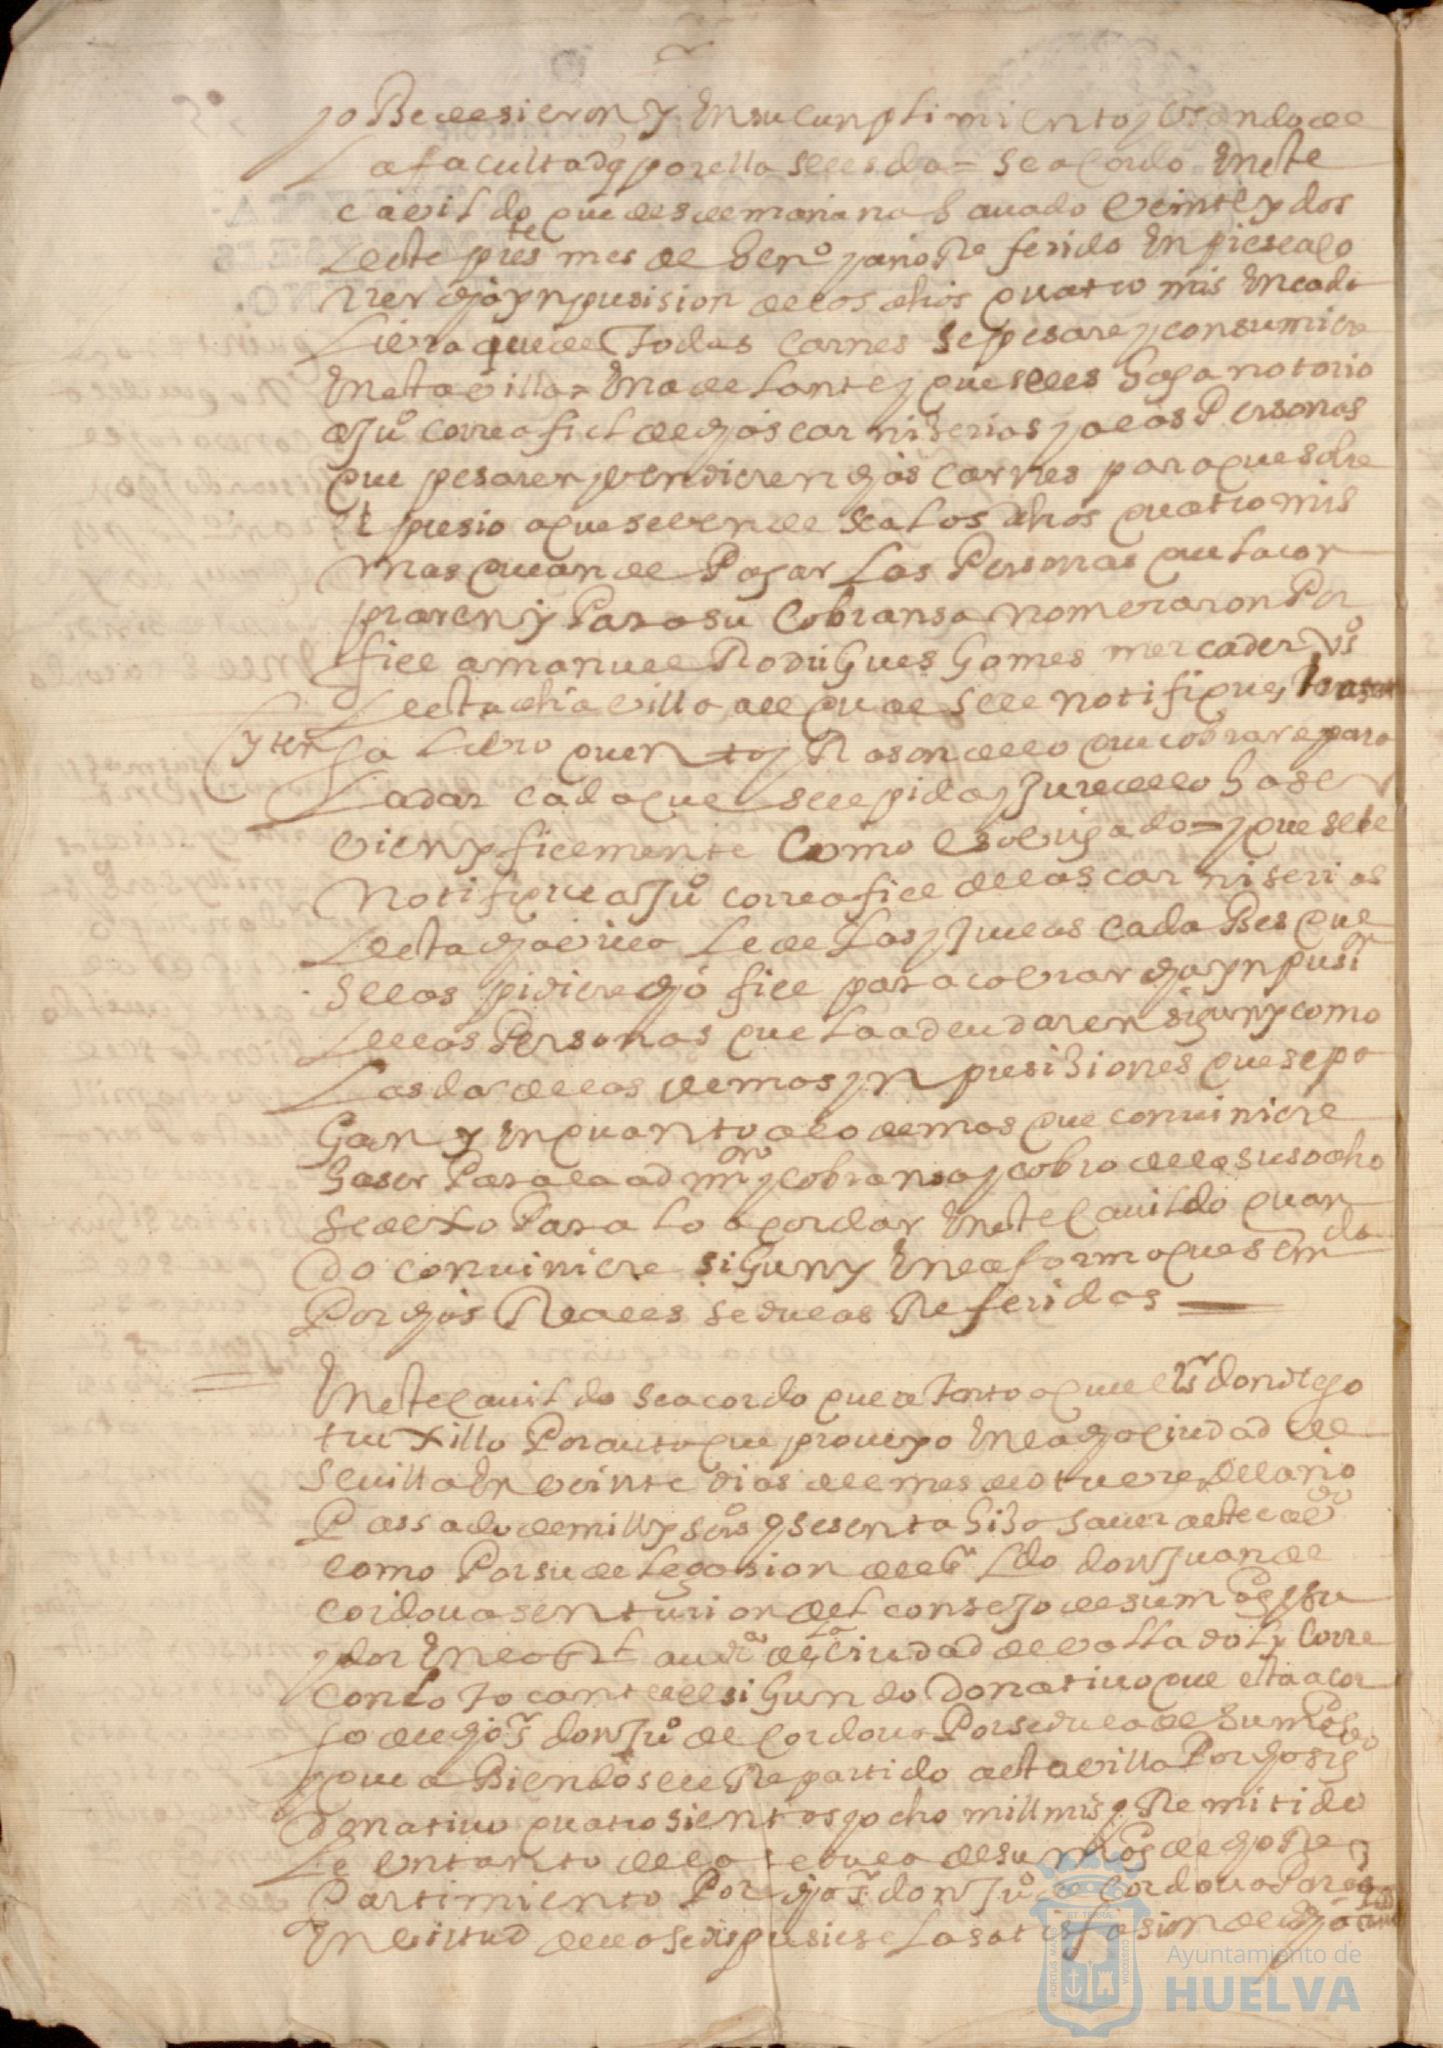 yo Bedesieron y En su cunplimiento y usando de
La facultad q por ella se les da = se acordo En este
cavildo que desde mañana savado veinte y dos
deste press.te mes de hen.o y año Referido Enpiese a co
rrer dha ynpusision de los dhos quatro mrs En cada
Livra que de Todas carnes se pesare y consumiere
En esta villa = En adelante y que se les haga notorio
a Ju.o correa fiel de dhas carniserias y a las Personas
que pesaren y vendieren dhas carnes para que sobre
el presio a que se vende sea los dhos quatro mrs
mas que an de Pagar Las Personas que la con
praren y Para su cobransa nombraron Por
fiel a manuel Rodrigues Gomes mercader v.o
desta dha villa al qual se le notifique
y ten ga Libro quenta y Rason de lo que cobrare para
La dar cada que se le pida y Jure de lo haser
vien y fielmente como es obligado = y que se le
notifique a Ju.o correa fiel de las carniserias
desta dha villa Le de Las sedulas cada Bes que
se las pidiere dho fiel para cobrar dha ynpusi.on
de las Personas que la adeudaren sigun y como
Las da de las demas ynpusisiones que se pa
Gan y En quanto a lo demas que conviniere
haser Para la adm.on y cobransa y cobro de lo susodho
se dexo Para lo acordar En este Cavildo quan
do conviniere sigun y En la forma que se m.da
Por dhas Reales sedulas Referidas
En este Cavildo se acordo que atento a que el s.r don diego
truxillo Por auto que proveyo En la dha ciudad de
Sevilla En veinte dias del mes de otuvre del año
Passado de mill y seis.os y sesenta hiso saver a este cav.do
como Por su delegasion del s.r L.do don Juan de
cordova senturion del consejo de su mag.d y su
ydor En la R.l aud.a de la ciudad de valladolid corre
con lo Tocante al sigundo Donativo que esta a car
go de dho s.r don Ju.o de Cordova Por sedula de su mag.d
y que aBiendosele Repartido a esta villa Por dho sig.do
donativo quatrosientos y ocho mill mrs y Remitido
Le un tanto de la sedula de su mag.d de dho Re
Partimiento Por dho s.r don Ju.o de Cordova Para q
En virtud della se dispusiese La satisfasion de dha
Ayuntamiento de
HUELVA